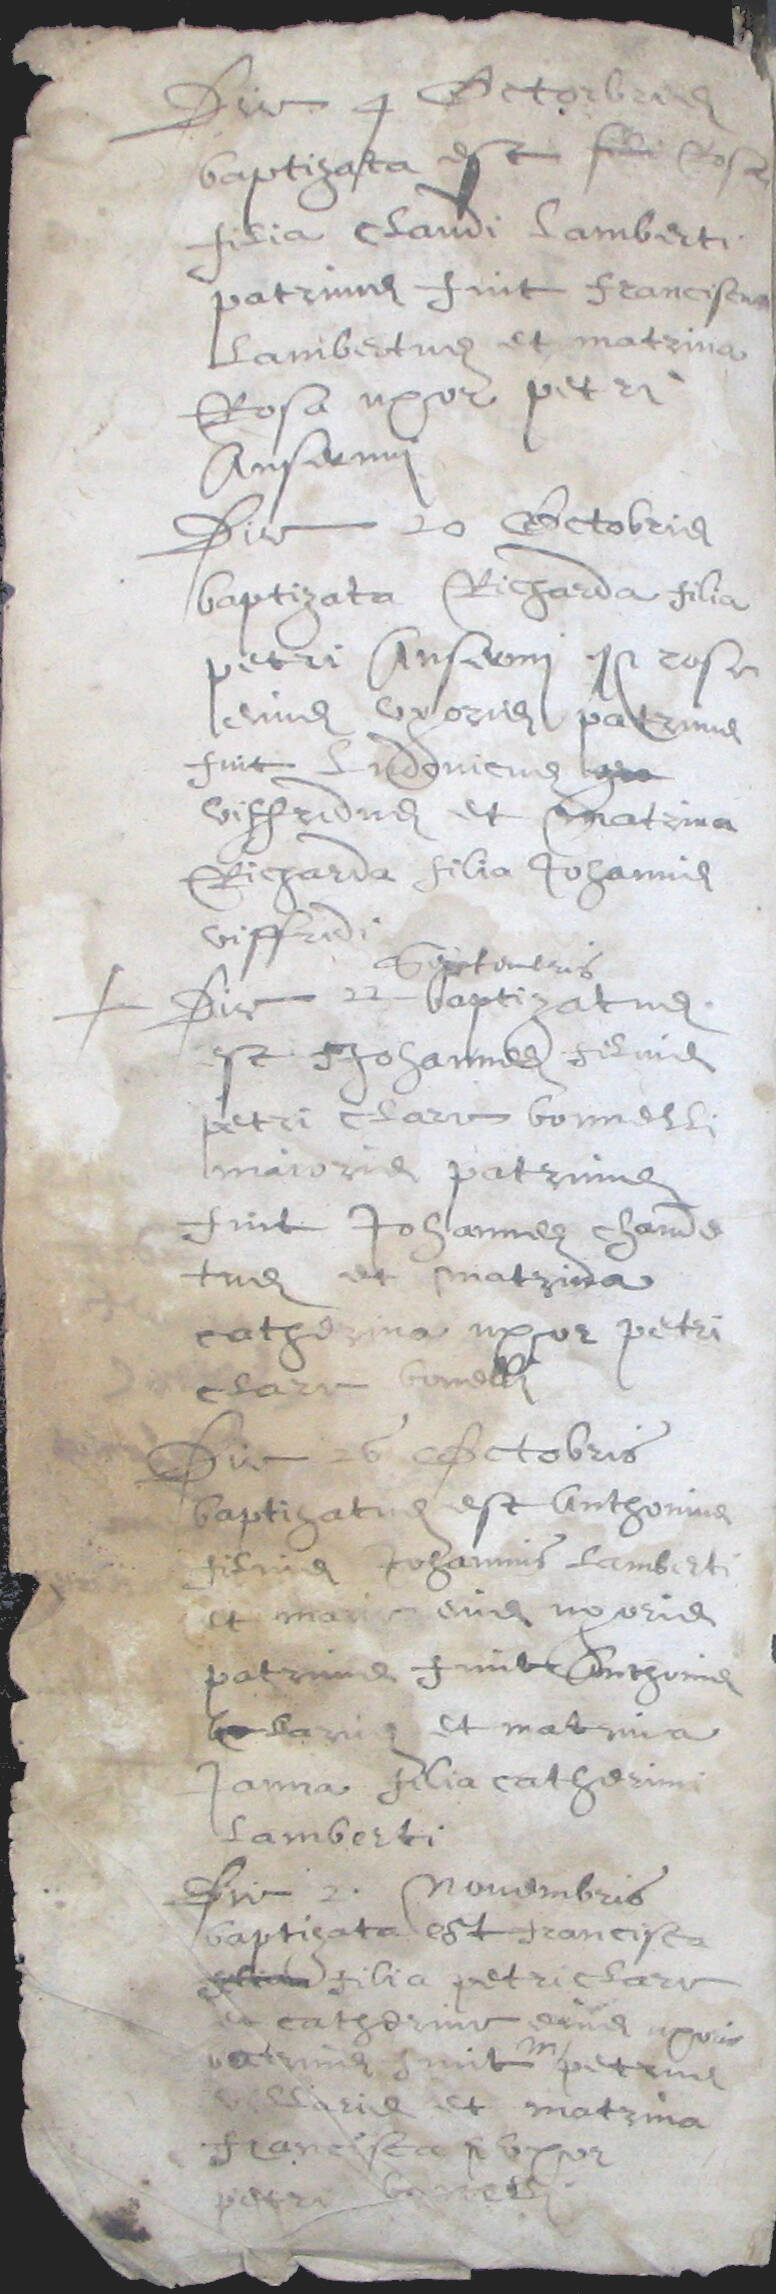 Die 4 Octorbris
baptizata est fili Rosa
filia Claudi Lamberti
patrinus fuit Franciscus
Lambertus et matrina
Rosa uxor petri
Anselmi
Die 20 Octobris
baptizata Richarda filia
petri Anselmi et rose
eius uxoris patrinus
fuit Ludovicus
viffredus et matrina
Richarda filia Johannis
viffredi
Septembris
Die 22 baptizatus
est Johannes filius
petri clare bonnelli
maioris patrinus
fuit Johannes chaude
tus et matrina
catherina uxor petri
clare bonelli
Die 26 Octobris
baptizatus est Anthonius
filius Johannis Lamberti
et marie eius uxoris
patrinus fuit Anthonius
clarus et matrina
Janna filia catherini
Lamberti
Die 2. Novembris
baptizata est francisca
filia petri clare
et catherine eius uxoris
patrinus fuit m petrus
et matrina
francisca uxor
petri bonelli